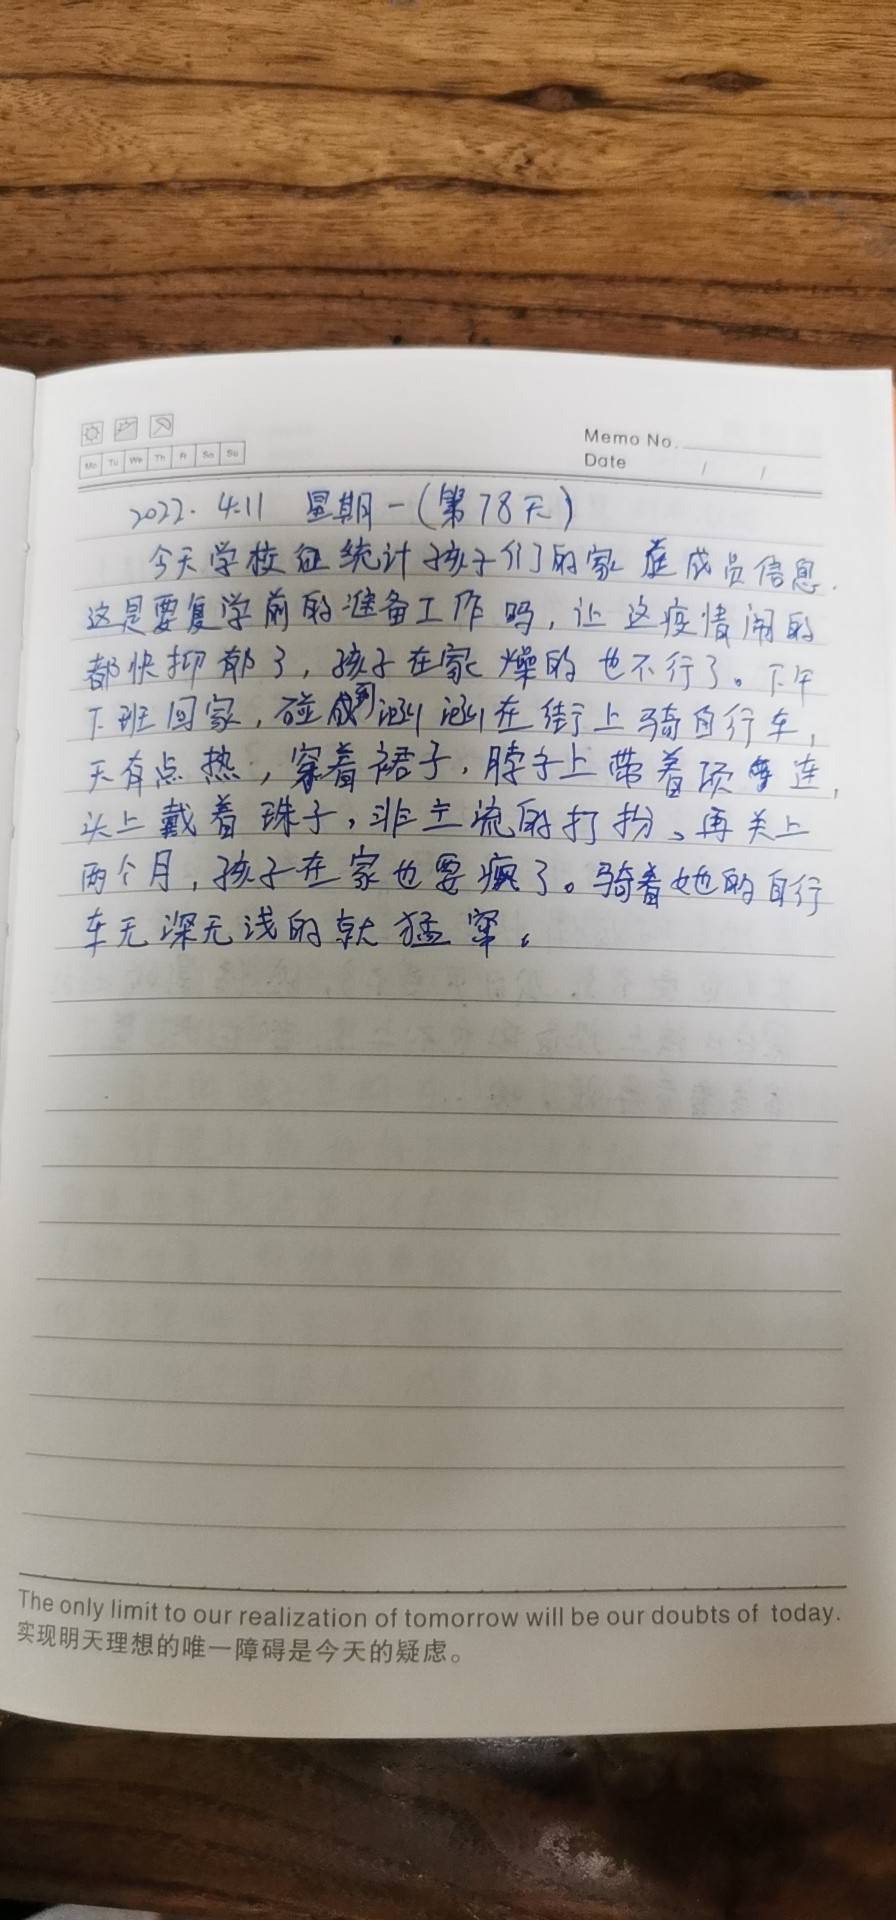 Memo No.
Mo Tu We Th Fr Sa Su
Date / /
2022. 4.11 星期一(第78天)
今天学校在统计孩子们的家庭成员信息.
这是要复学前的准备工作吗，让这疫情闹的
都快抑郁了，孩子在家燥的也不行了。下午
下班回家，碰到涵涵在街上骑自行车，
天有点热，穿着裙子，脖子上带着项连，
头上戴着珠子，非主流的打扮、再关上
两个月，孩子在家也要疯了。骑着她的自行
车无深无浅的就猛窜。
The only limit to our realization of tomorrow will be our doubts of today.
实现明天理想的唯一障碍是今天的疑虑。